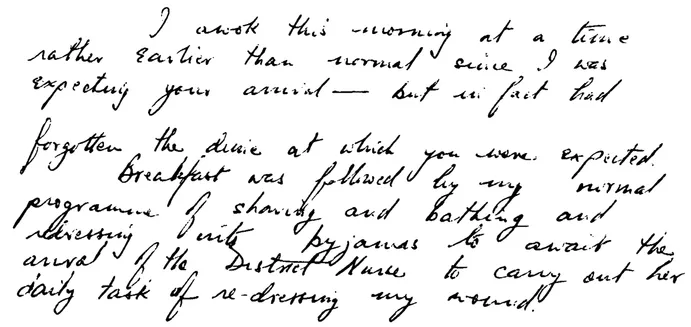 I awok this morning at a time
rather earlier than normal since I was
expecting your arrival — but in fact had
forgotten the dime at which you were expected.
Breakfast was followed by my normal
programme of shaving and bathing and
redressing into pyjamas to await the
arrival of the District Nurse to carry out her
daily task of re-dressing my wound.